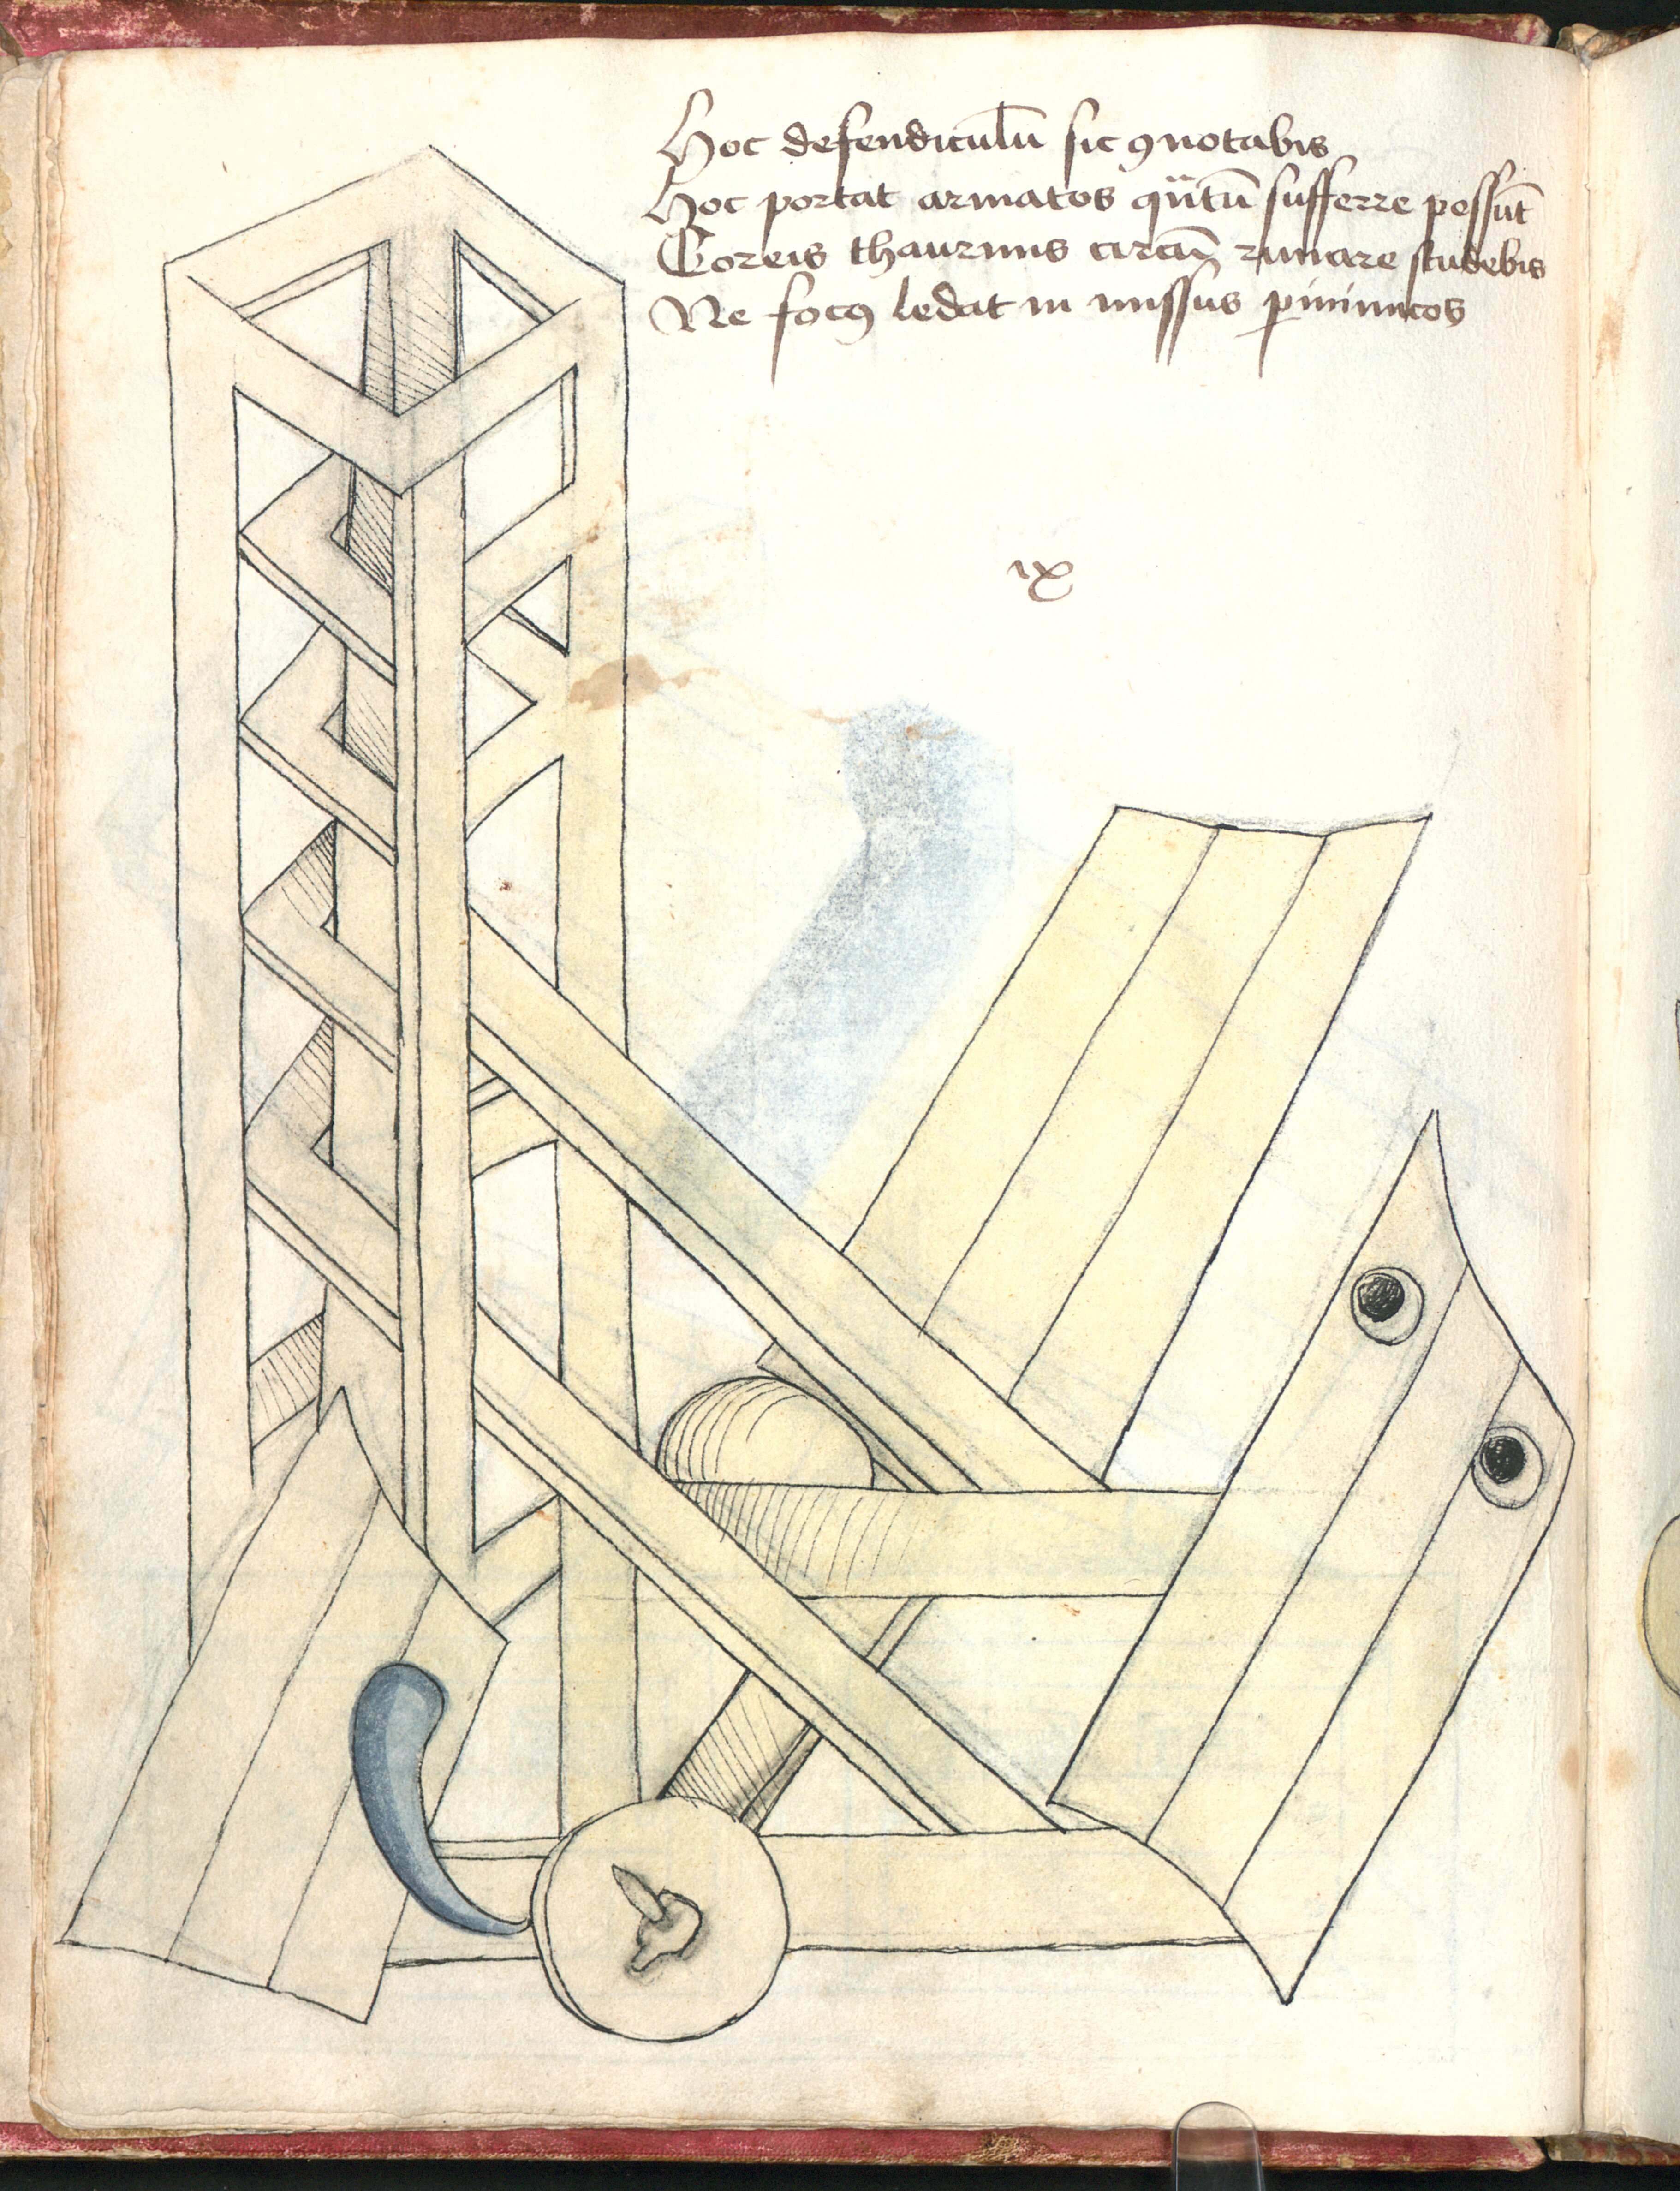 Hoc defendiculū sic ꝯnotabis
Hoc portat armatos qūtū sufferre possūt
Coreis thaurinis circū rimare studebis
Ne focꝰ ledat in missus ꝑ inimicos
ix